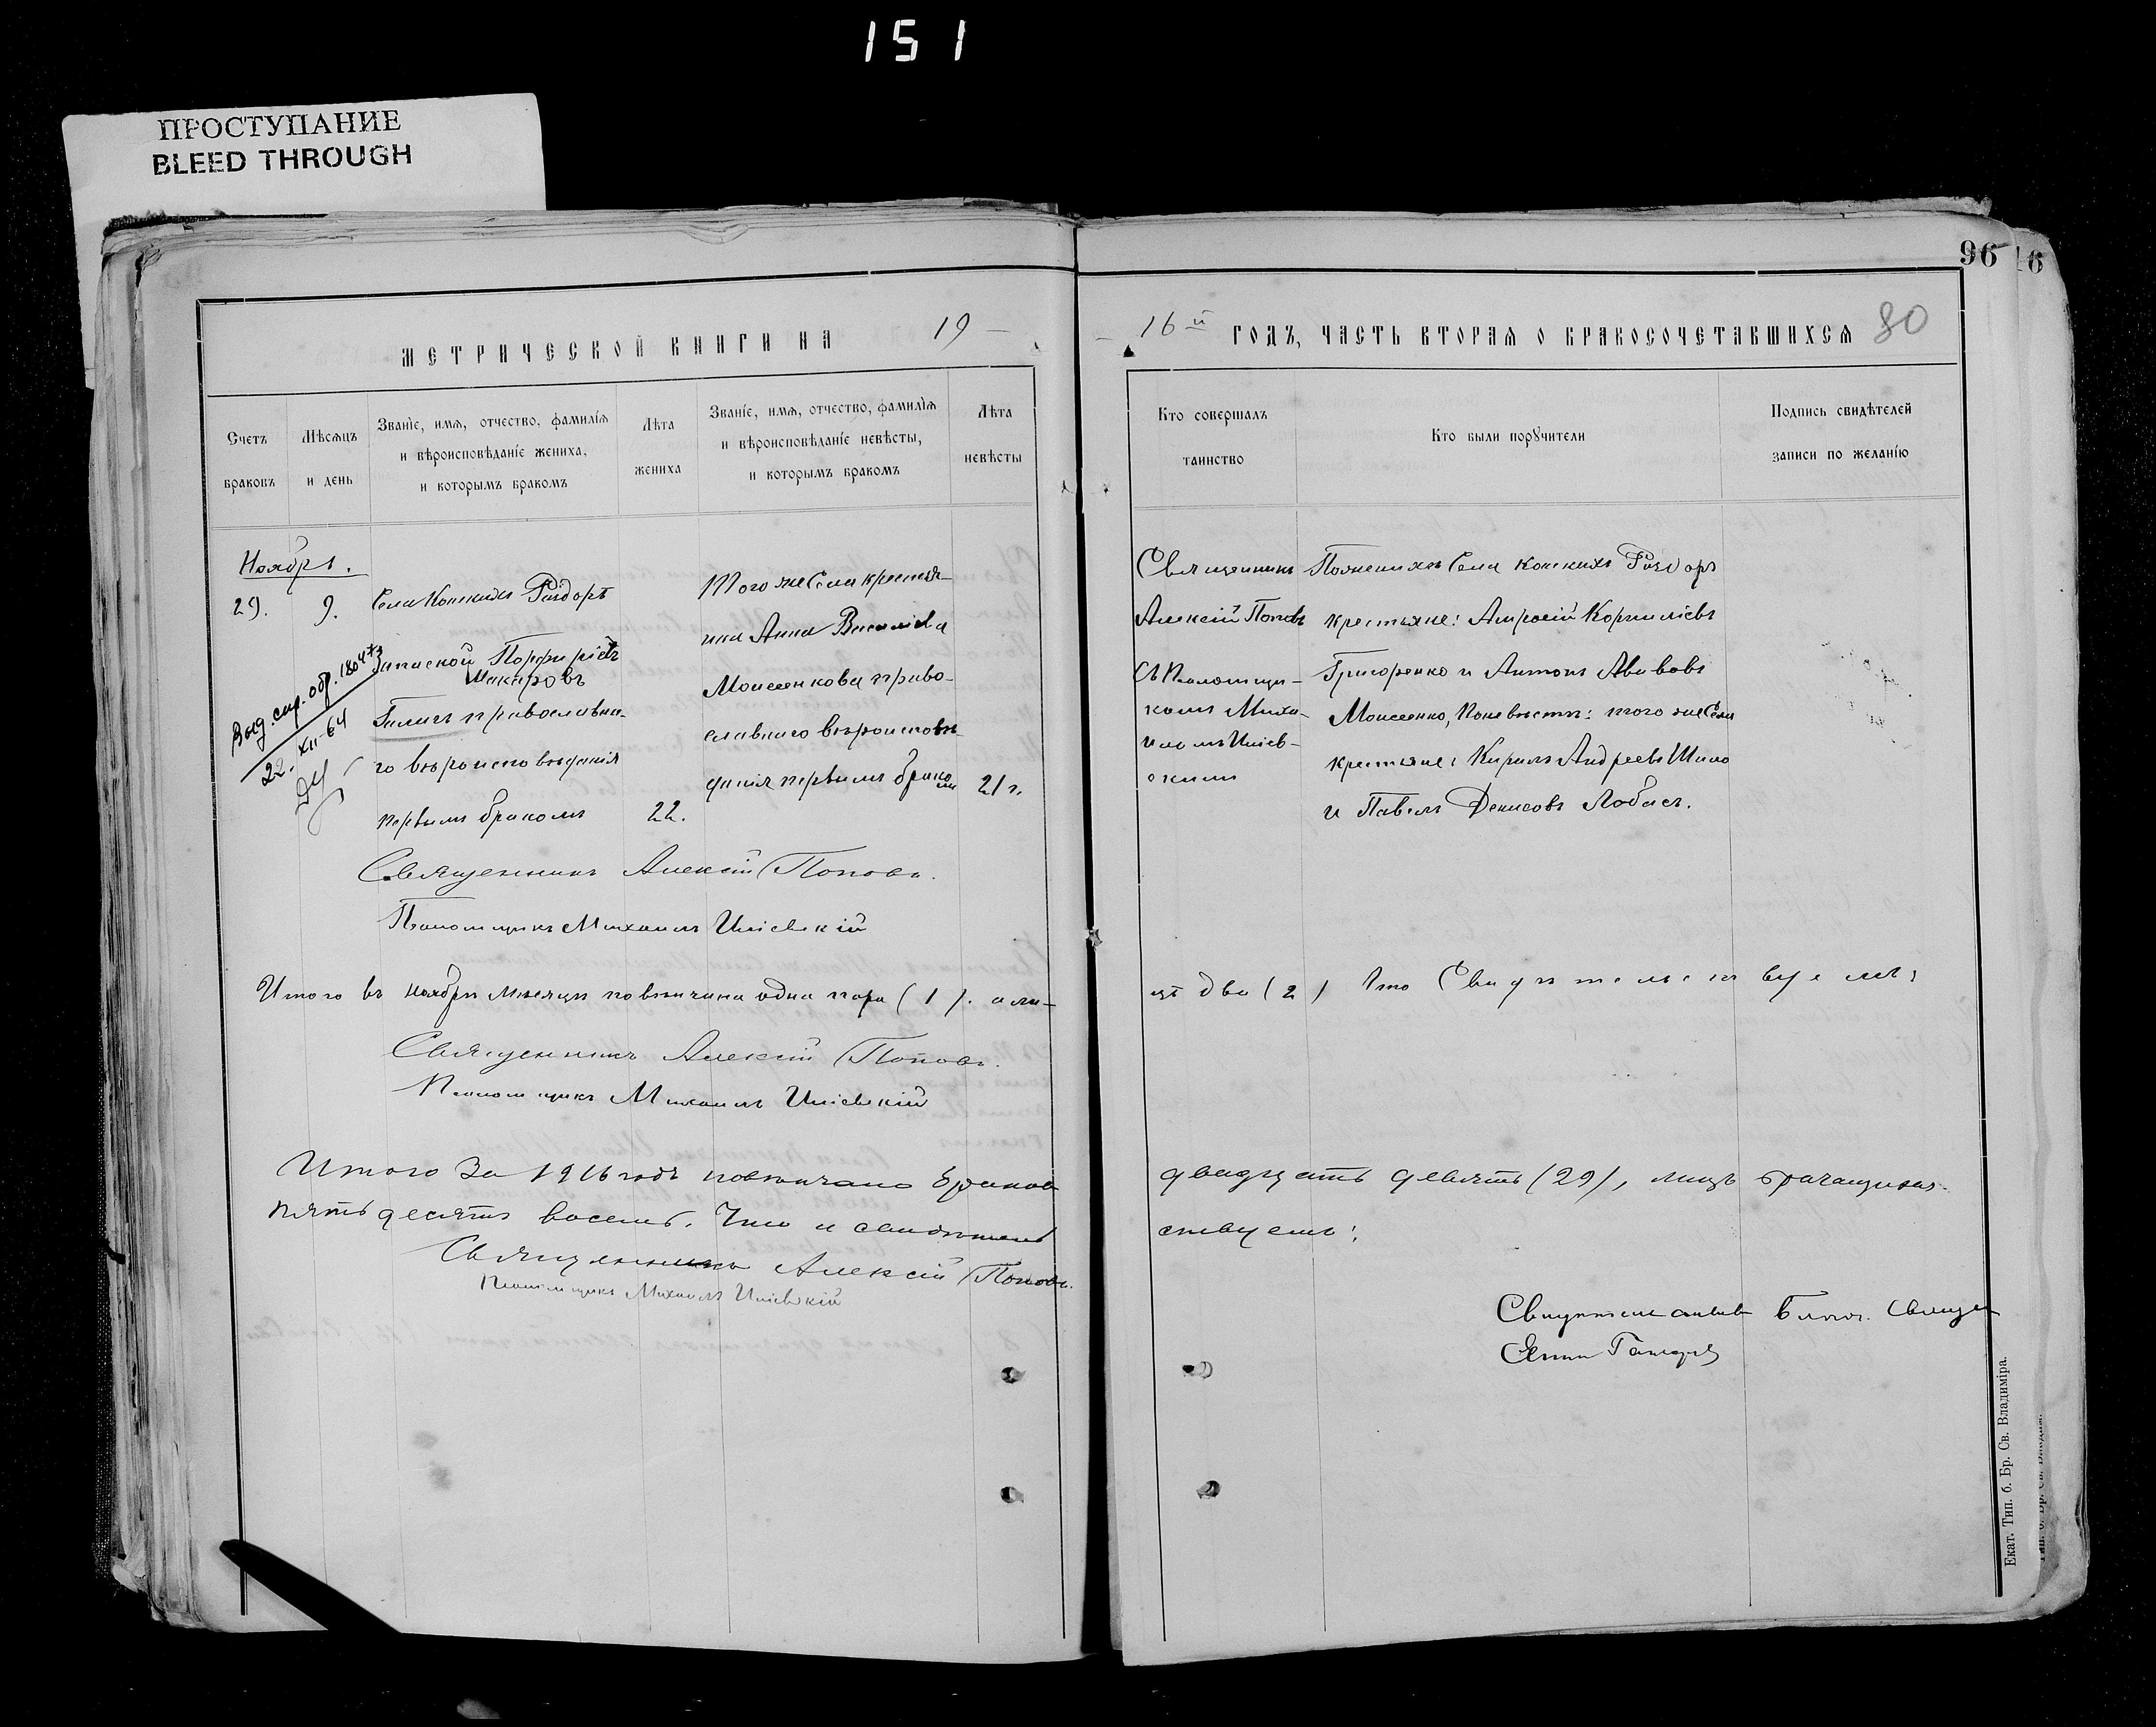 151
ПРОСТУПАНИЕ
BLEED THROUGH
96
6
МЕТРИЧЕСКОЙ КНИГИ НА 19
16й ГОДЪ, ЧАСТЬ ВТОРАЯ О БРАКОСОЧЕТАВШИХСЯ 80
Счетъ
браковъ
Мѣсяцъ
и день
Званіе, имя, отчество, фамилія
и вѣроисповѣданіе жениха,
и которымъ бракомъ
Лѣта
жениха
Званіе, имя, отчество, фамилія
и вѣроисповѣданіе невѣсты,
и которымъ бракомъ
Лѣта
невѣсты
Кто совершалъ
таинство
Кто были поручители
Подпись свидѣтелей
записи по желанію
Ноябрь.
29. 9.
Села Конскихъ Раздоръ
Порфирій
Макаровъ
православна-
го вѣроисповѣданія
первымъ бракомъ 22.
Выд. спр. обр.
22. XII-64
Того же Села крестья-
нка Анна Василіева
Моисеенкова право-
славнаго вѣроисповѣ-
данія первымъ бракомъ 21 г.
Священникъ
Алексій Поповъ
съ Псаломщи-
комъ Миха-
иломъ
скимъ
По женихѣ Села Конскихъ Раздоръ
крестьяне: Корниліевъ
Григоренко и Антонъ
Моисеенко, по невѣсте: того же Села
крестьяне: Кирилъ Андреевъ Шило
и Павелъ Денисовъ Лобасъ.
Священникъ Алексій Поповъ.
Псаломщикъ Михаилъ
Итого въ ноябрѣ мѣсяцѣ повѣнчана одна пара (1). а ли-
цъ два (2) Что Свидѣтельствуемъ:
Священникъ Алексій Поповъ.
Псаломщикъ Михаилъ
Итого За 1916 годъ повѣнчано браковъ
двадцать девять (29), лицъ брачащихся
пятьдесятъ восемь. Что и свидѣтель
ствуемъ:
Священникъ Алексій Поповъ.
Псаломщикъ Михаилъ
Екат. Тип. б. Бр. Св. Владиміра.